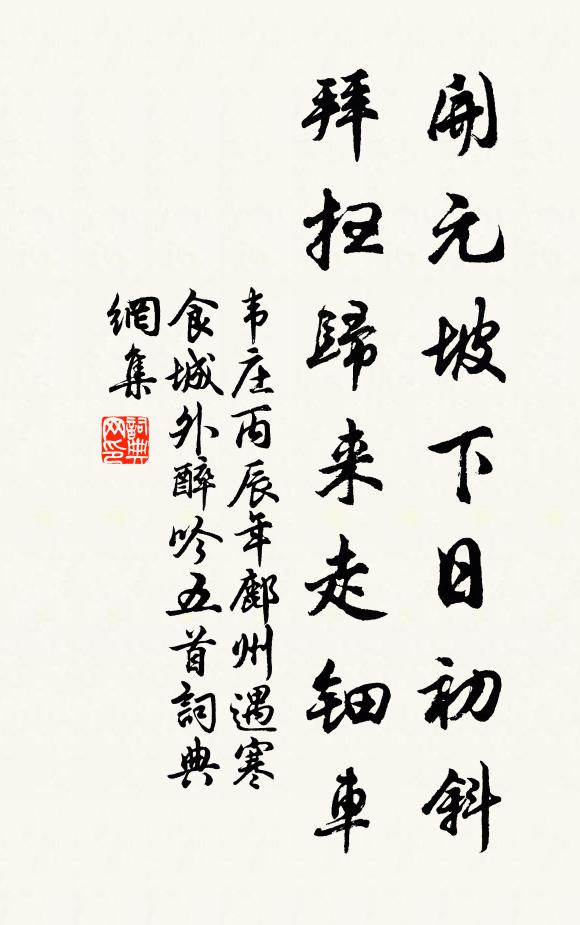 開元坡下日初斜
拜掃歸來走鈿車
韦庄丙辰年鄜州遇寒
食城外醉吟五首詞典
網集
詞典
网印